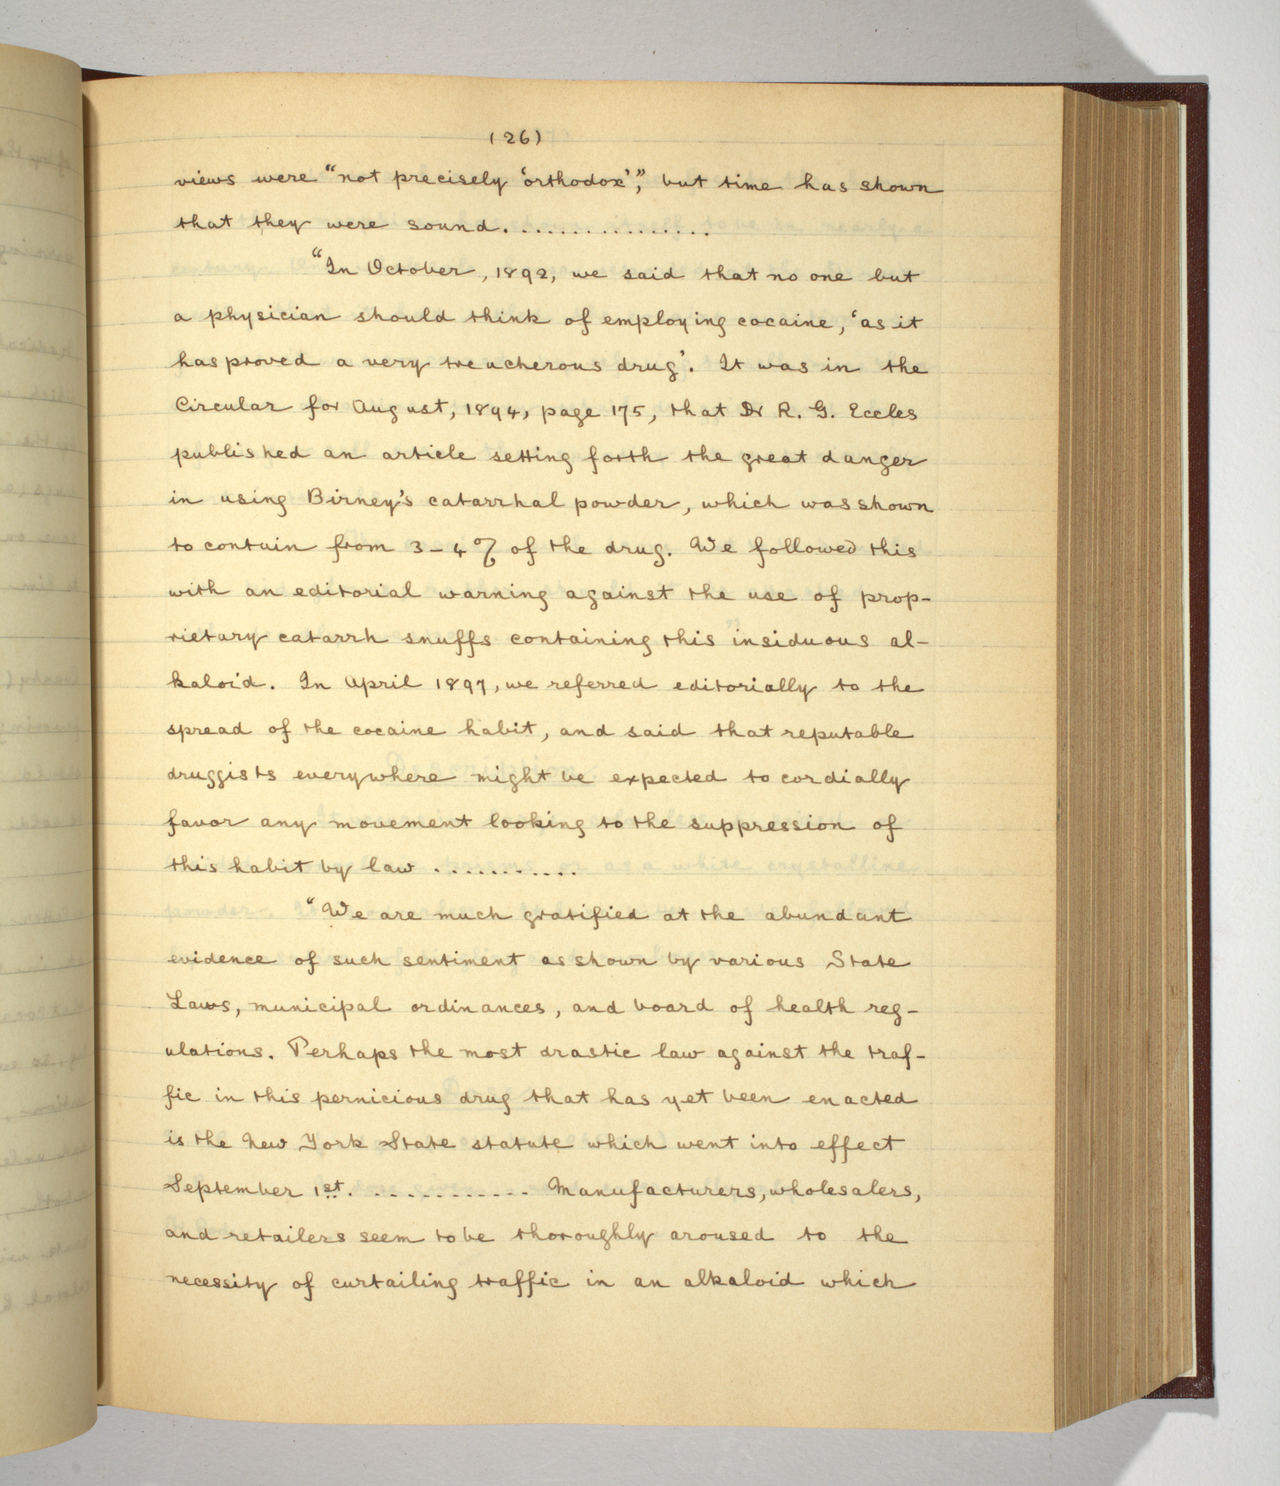 (26)
views were "not precisely 'orthodox'", but time has shown
that they were sound................
"In October, 1892, we said that no one but
a physician should think of employing cocaine, 'as it
has proved a very treacherous drug'. It was in the
Circular for August, 1894, page 175, that Dr R. G. Eccles
published an article setting forth the great danger
in using Birney's catarrhal powder, which was shown
to contain from 3-4% of the drug. We followed this
with an editorial warning against the use of prop-
rietary catarrh snuffs containing this insiduous al-
kaloid. In April 1897, we referred editorially to the
spread of the cocaine habit, and said that reputable
druggists everywhere might be expected to cordially
favor any movement looking to the suppression of
this habit by law ...........
"We are much gratified at the abundant
evidence of such sentiment as shown by various State
Laws, municipal ordinances, and board of health reg-
ulations. Perhaps the most drastic law against the traf-
fic in this pernicious drug that has yet been enacted
is the New York State statute which went into effect
September 1st. ........... Manufacturers, wholesalers,
and retailers seem to be thoroughly aroused to the
necessity of curtailing traffic in an alkaloid which